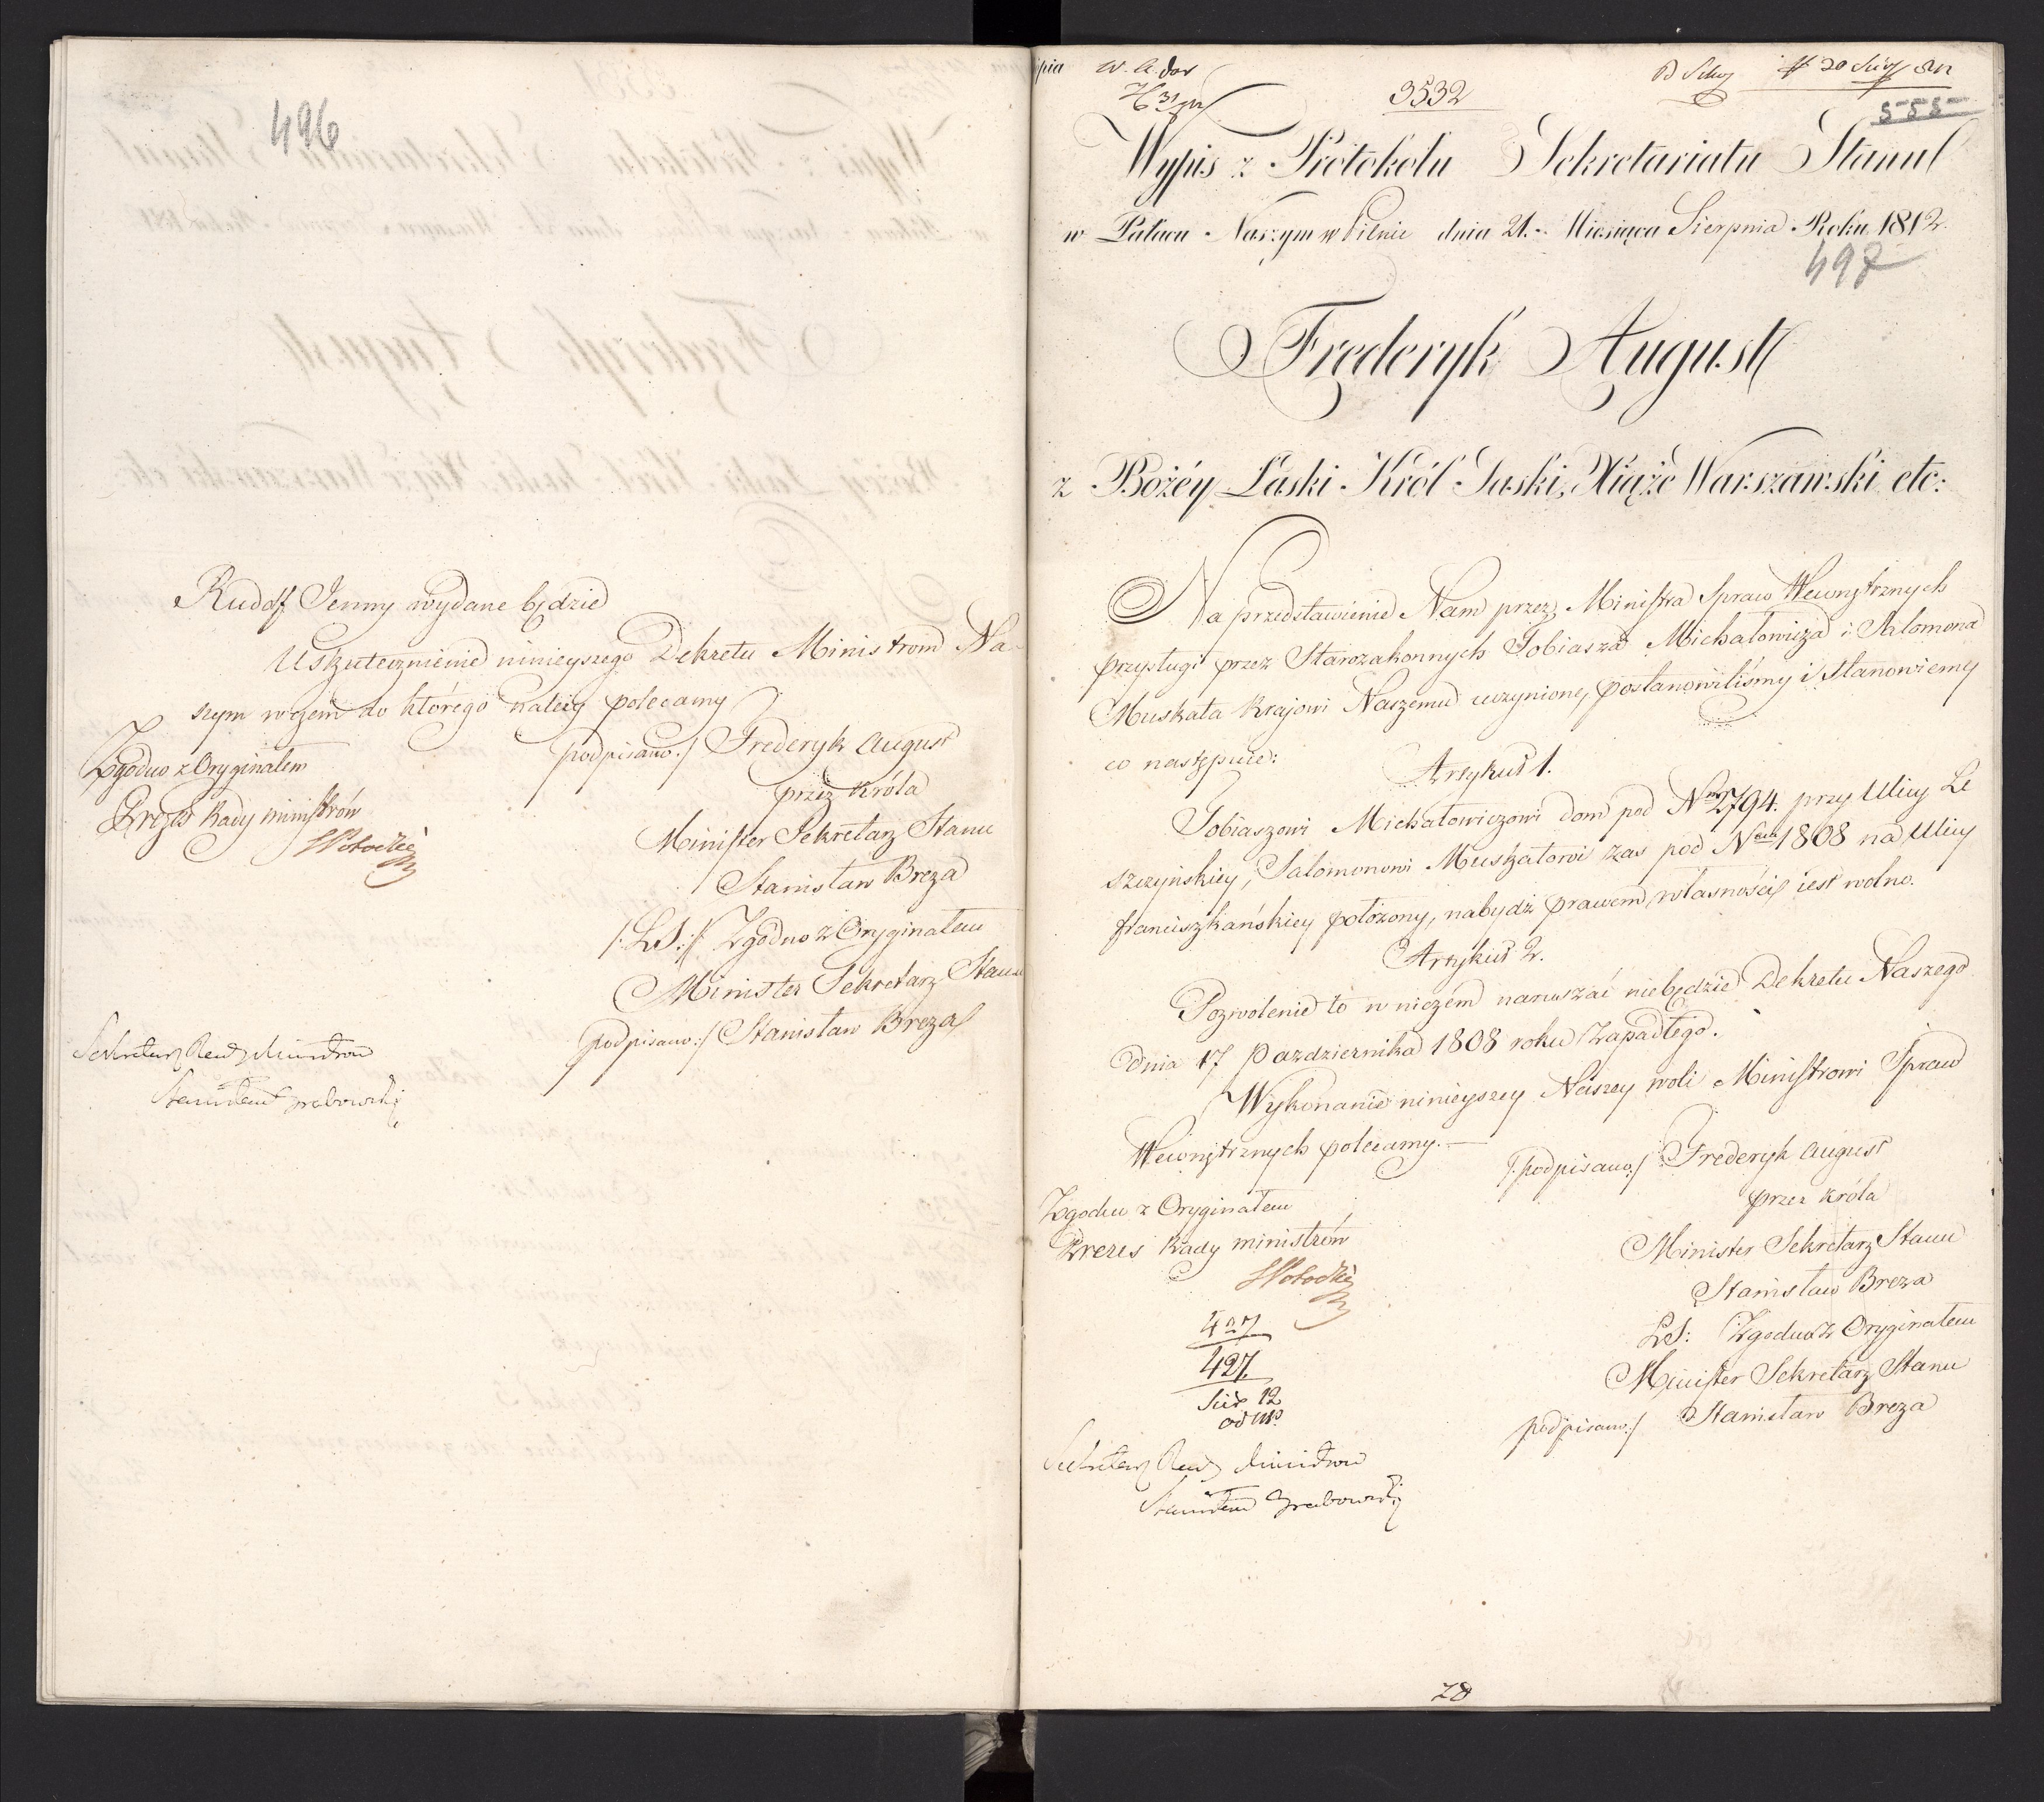 496
Rudolf Jenny wydane będzie
Uskutecznienie ninieyszego Dekretu Ministrom Na-
szym w czém do którego należy polecamy
Zgodno z Oryginałem
podpisano:/ Frederyk August
Prezes Rady Ministrów
przez Króla
Minister Sekretarz Stanu
Stanisław Breza
/:LS:/ Zgodno z Oryginałem
Minister Sekretarz Stanu
podpisano:/ Stanisław Breza
Sekretarz Rady Ministrów
Stanisław Grabowski
3532
555
Wypis z Protokołu Sekretariatu Stanu
w Pałacu Naszym w Pilnic dnia 21. Miesiąca Sierpnia Roku 1812.
497
Frederyk August
z Bożéy Łaski Król Saski, Xiąże Warszawski etc:
Na przedstawienie Nam przez Ministra Spraw Wewnętrznych
przysługi przez Starozakonnych Tobiasza Michałowicza i Salomona
Muskata Krajowi Naszemu uczynione, postanowiliśmy i stanowiemy
co następuie:
Artykuł 1.
Tobiaszowi Michałowiczowi dom pod Nrem 2794. przy Ulicy Le
szczyńskiey, Salomonowi Muskatowi zas pod Nrem 1808 na Ulicy
franciszkańskiey położony, nabydź prawem własności iest wolno.
Artykuł 2.
Pozwolenie to w niczem naruszać niebędzie Dekretu Naszego
dnia 17 Pazdziernika 1808 roku zapadłego.
Wykonanie ninieyszey Naszey woli Ministrowi Spraw
Wewnętrznych polecamy.
/:podpisano:/ Frederyk August
przez Króla
Zgodno z Oryginałem
Prezes Rady Ministrów
Minister Sekretarz Stanu
Stanisław Breza
LS: Zgodno z Oryginałem
Minister Sekretarz Stanu
podpisano:/ Stanisław Breza
427
427
Sekretarz Rady Ministrów
Stanisław Grabowski